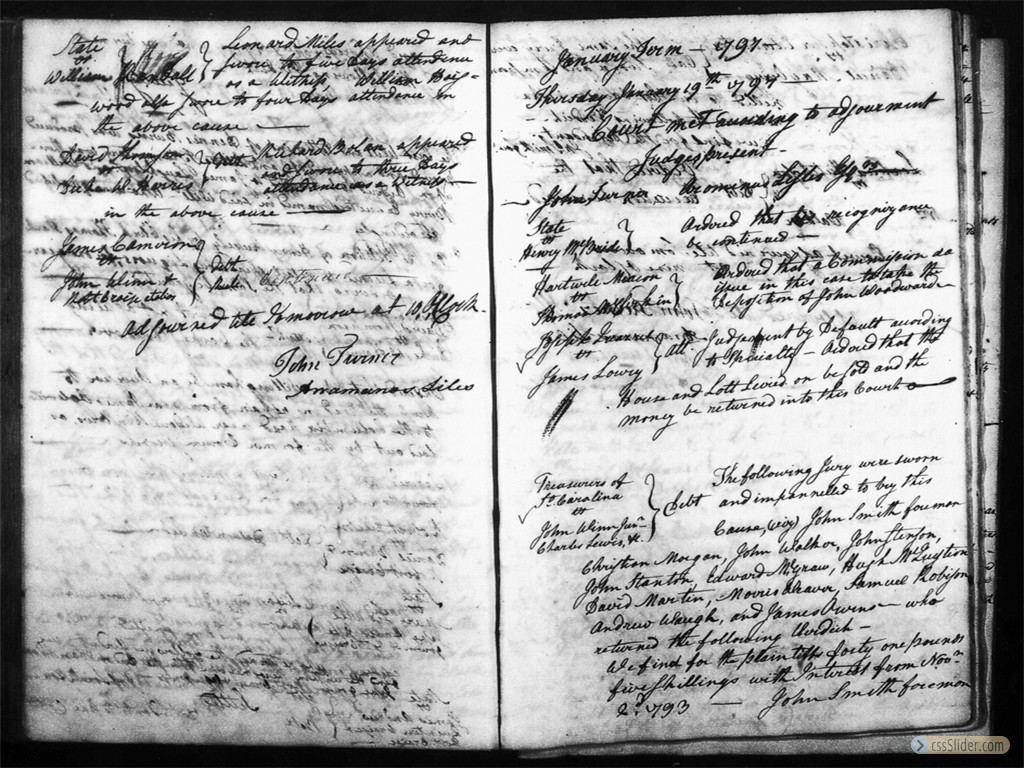 State
vs
William Randall
Leonard Miles appeared and
swore to five days attendence
as a Witness, William Bois-
wood also swore to four Days attendance in
the above cause
David Thompson
Debt Richard Bolan appeared
and swore to three Days
attendance as a Witness
in the above cause
James Camiron
vs
John Winn &
Debt
Adjourned till Tomorrow at 10 OClock.
John Turner
January Term - 1797
Thursday January 19th 1797
Court met according to adjourment
Judges present
John Turner
State
vs
Henry McBride
Ordored that recognizance
be continued
Hartwell Macon
vs
Thomas
Ordored that a Commission do
issue in this case to take the
Deposition of John Woodward
vs
James Lowry
Att
Judgement by Default acording
to Specialty - Ordored that the
House and Lott Livied on be sold and the
money be returned into this Court
Treasurers of
So Carolina
vs
John Winn Junr
Charles Lewis, &c.
Debt
The following Jury were sworn
and impannelled to try this
Cause, (viz) John Smith foreman
Christian Morgan, John Walker, John Stenson,
John Stanton, Edward McGraw, Hugh McQustion
David Martin, Morris Weaver, Samuel Robison
Andrew Waugh, and James Owens who
returned the following Verdict -
We find for the plaintiffs forty one pounds
five Shillings with Interest from Novm
2d 1793 - John Smith foreman
cssSlider.com